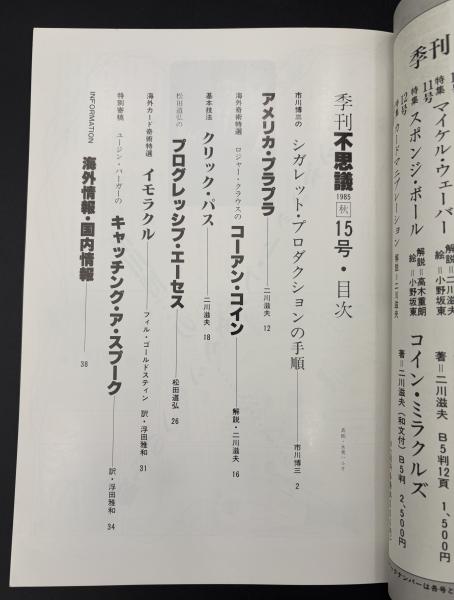 季刊不思議 1985 秋 15号・目次
市川博三の シガレット・プロダクションの手順 市川博三 2
アメリカ・ブラブラ 二川滋夫 12
海外奇術特選 ロジャー・クラウスの コーアン・コイン 解説・二川滋夫 16
基本技法 クリック・パス 二川滋夫 18
松田道弘の プログレッシブ・エーセス 松田道弘 26
海外カード奇術特選 イモラクル フィル・ゴールドスティン 訳・浮田雅和 31
特別寄稿 ユージン・バーガーの キャッチング・ア・スプーク 訳・浮田雅和 34
INFORMATION 海外情報・国内情報 38
季刊
11号
特集 マイケル・ウェーバー 解説=二川滋
特集 スポンジ・ボール 解説=高木重朗
絵=小野坂東
12号
特集 カードマニプレーション 解説=二川滋夫
絵=小野坂東
コイン・ミラクルズ
著=二川滋夫 B5判12頁 1,500円
著=二川滋夫(和文付)B5判 2,500円
ックナンバーは各号と